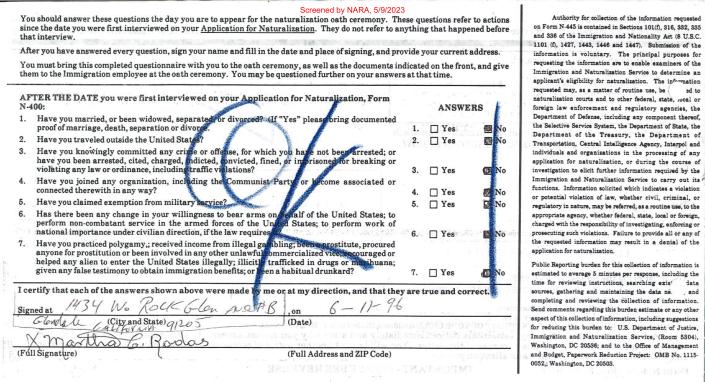 Screened by NARA, 5/9/2023
You should answer these questions the day you are to appear for the naturalization oath ceremony. These questions refer to actions
since the date you were first interviewed on your Application for Naturalization. They do not refer to anything that happened before
that interview.
After you have answered every question, sign your name and fill in the date and place of signing, and provide your current address.
You must bring this completed questionnaire with you to the oath ceremony, as well as the documents indicated on the front, and give
them to the Immigration employee at the oath ceremony. You may be questioned further on your answers at that time.
AFTER THE DATE you were first interviewed on your Application for Naturalization, Form
N-400:
ANSWERS
1. Have you married, or been widowed, separated, or divorced? (If "Yes" please bring documented
proof of marriage, death, separation or divorce.
1. Yes No
2. Have you traveled outside the United States?
2. Yes No
3. Have you knowingly committed any crime or offense, for which you have not been arrested; or
have you been arrested, cited, charged, indicted, convicted, fined, or imprisoned for breaking or
violating any law or ordinance, including traffic violations?
3. Yes No
4. Have you joined any organization, including the Communist Party, or become associated or
connected therewith in any way?
4. Yes No
5. Have you claimed exemption from military service?
5. Yes No
6. Has there been any change in your willingness to bear arms on behalf of the United States; to
perform non-combatant service in the armed forces of the United States; to perform work of
national importance under civilian direction, if the law requires it?
6. Yes No
7. Have you practiced polygamy,; received income from illegal gambling; been a prostitute, procured
anyone for prostitution or been involved in any other unlawful commercialized vice; encouraged or
helped any alien to enter the United States illegally; illicitly trafficked in drugs or marihuana;
given any false testimony to obtain immigration benefits; or been a habitual drunkard?
7. Yes No
OK
I certify that each of the answers shown above were made by me or at my direction, and that they are true and correct.
Signed at 1434 Wo Rock Glen B , on 6-11-96
Glendale California 91205
(City and State) (Date)
X Martha C. Rodas
(Full Signature) (Full Address and ZIP Code)
Authority for collection of the information requested
on Form N-445 is contained in Sections 101(f), 316, 332, 335
and 336 of the Immigration and Nationality Act (8 U.S.C.
1101 (f), 1427, 1443, 1446 and 1447). Submission of the
information is voluntary. The principal purposes for
requesting the information are to enable examiners of the
Immigration and Naturalization Service to determine an
applicant's eligibility for naturalization. The information
requested may, as a matter of routine use, be ed to
naturalization courts and to other federal, state, local or
foreign law enforcement and regulatory agencies, the
Department of Defense, including any component thereof,
the Selective Service System, the Department of State, the
Department of the Treasury, the Department of
Transportation, Central Intelligence Agency, Interpol and
individuals and organizations in the processing of any
application for naturalization, or during the course of
investigation to elicit further information required by the
Immigration and Naturalization Service to carry out its
functions. Information solicited which indicates a violation
or potential violation of law, whether civil, criminal, or
regulatory in nature, may be referred, as a routine use, to the
appropriate agency, whether federal, state, local or foreign,
charged with the responsibility of investigating, enforcing or
prosecuting such violations. Failure to provide all or any of
the requested information may result in a denial of the
application for naturalization.
Public Reporting burden for this collection of information is
estimated to average 5 minutes per response, including the
time for reviewing instructions, searching exis data
sources, gathering and maintaining the data ne and
completing and reviewing the collection of information.
Send comments regarding this burden estimate or any other
aspect of this collection of information, including suggestions
for reducing this burden to: U.S. Department of Justice,
Immigration and Naturalization Service, (Room 5304),
Washington, DC 20536; and to the Office of Management
and Budget, Paperwork Reduction Project: OMB No. 1115-
0052, Washington, DC 20503.